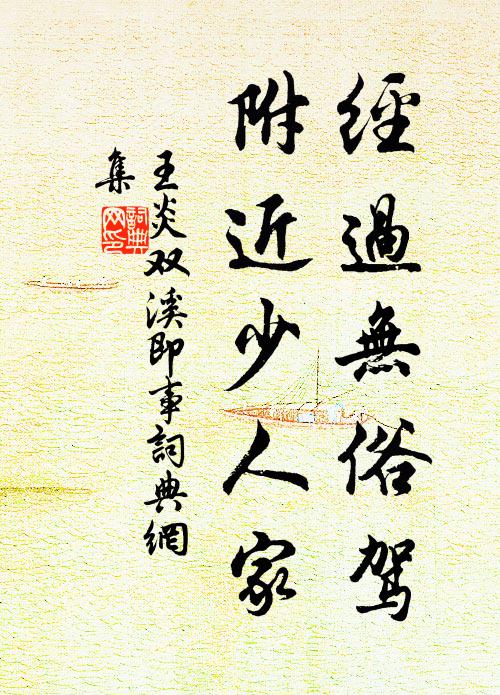 經過無俗駕
附近少人家
王炎双溪即事詞典網
集
詞典
网印